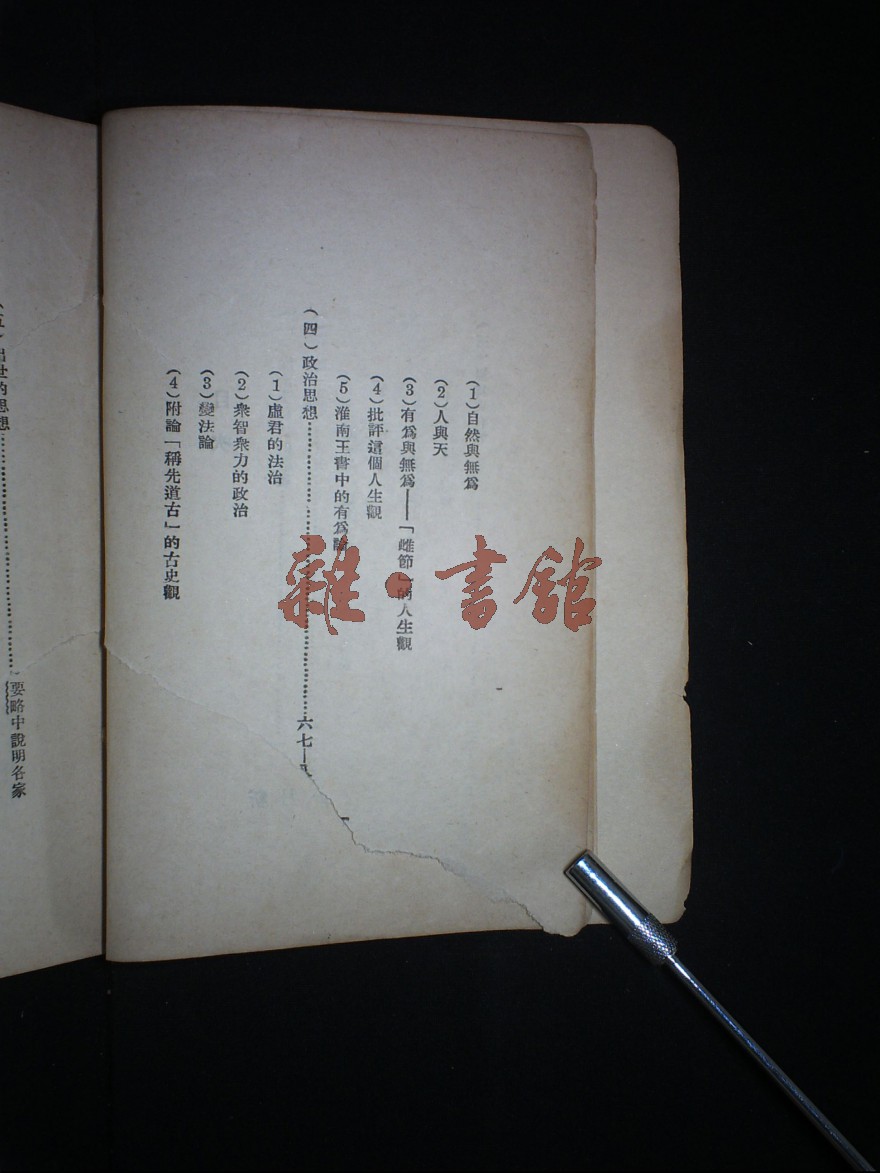 (1)自然與無爲
(2)人與天
(3)有爲與無爲——「雌節」的人生觀
(4)批評這個人生觀
(5)淮南王書中的有爲論
(四)政治思想……六七—
(1)虛君的法治
(2)衆智衆力的政治
(3)變法論
(4)附論「稱先道古」的古史觀
要略中說明各家
(五)出世的思想……
雜·書館